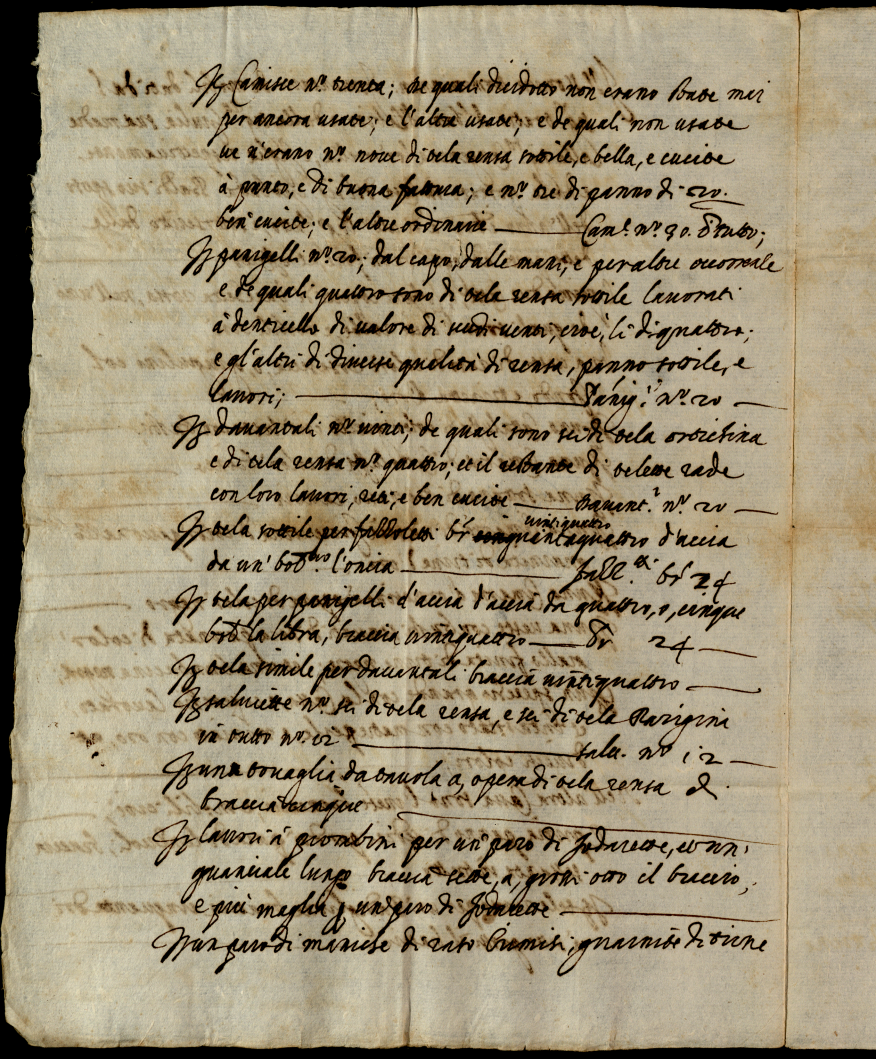 It. Camisce n.º trenta; de quali dicidotto non erano state mai
per ancora usate; e l'altre usate; e de quali non usate
ve n'erano n.º nove di tela rensa sottile, e bella, e cucite
à punto, e di buona fattura; e n.º tre di panno di 20.
ben cucite; e l'altre ordinarie Cam.e n.º 30. tutto;
It. panigelli n.º 20; dal capo, dalle mani, e per altre occorrale
e de quali quattro sono di tela rensa sottile lavorati
à denticello di valore di scudi venti, cioè, li di quattro;
e gl'altri di diverse qualità di rensa, panno sottile, e
lavori; Panig.i n.º 20
It. davantali n.º venti; de quali sono sei di tela ortichina
e di tela rensa n.º quattro; et il restante di velette rade
con loro lavori, reti, e ben cucite Davant.i n.º 20
It. tela sottile per fazzoletti br. vintiquattro d'accia
da un' bol.no l'oncia br 24
It. tela per panigelli d'accia d'accia da quattro, o, cinque
bol. la libra, braccia vintiquattro Br 24
It. tela simile per davantali braccia vintiquattro
It. salviette n.º sei di tela rensa, e sei di tela Parigina
in tutto n.º 12 salv. n.º 12
It. una tovaglia da tavola a, opera di tela rensa di
braccia cinque
It. lavori à piombini per un' paro di foderette, et un'
guanciale lungo braccia sette, a, groni otto il braccio,
e più maglia p. un' paro di foderette
It. un paro di maniche di raso cremisi, guarnite di trine